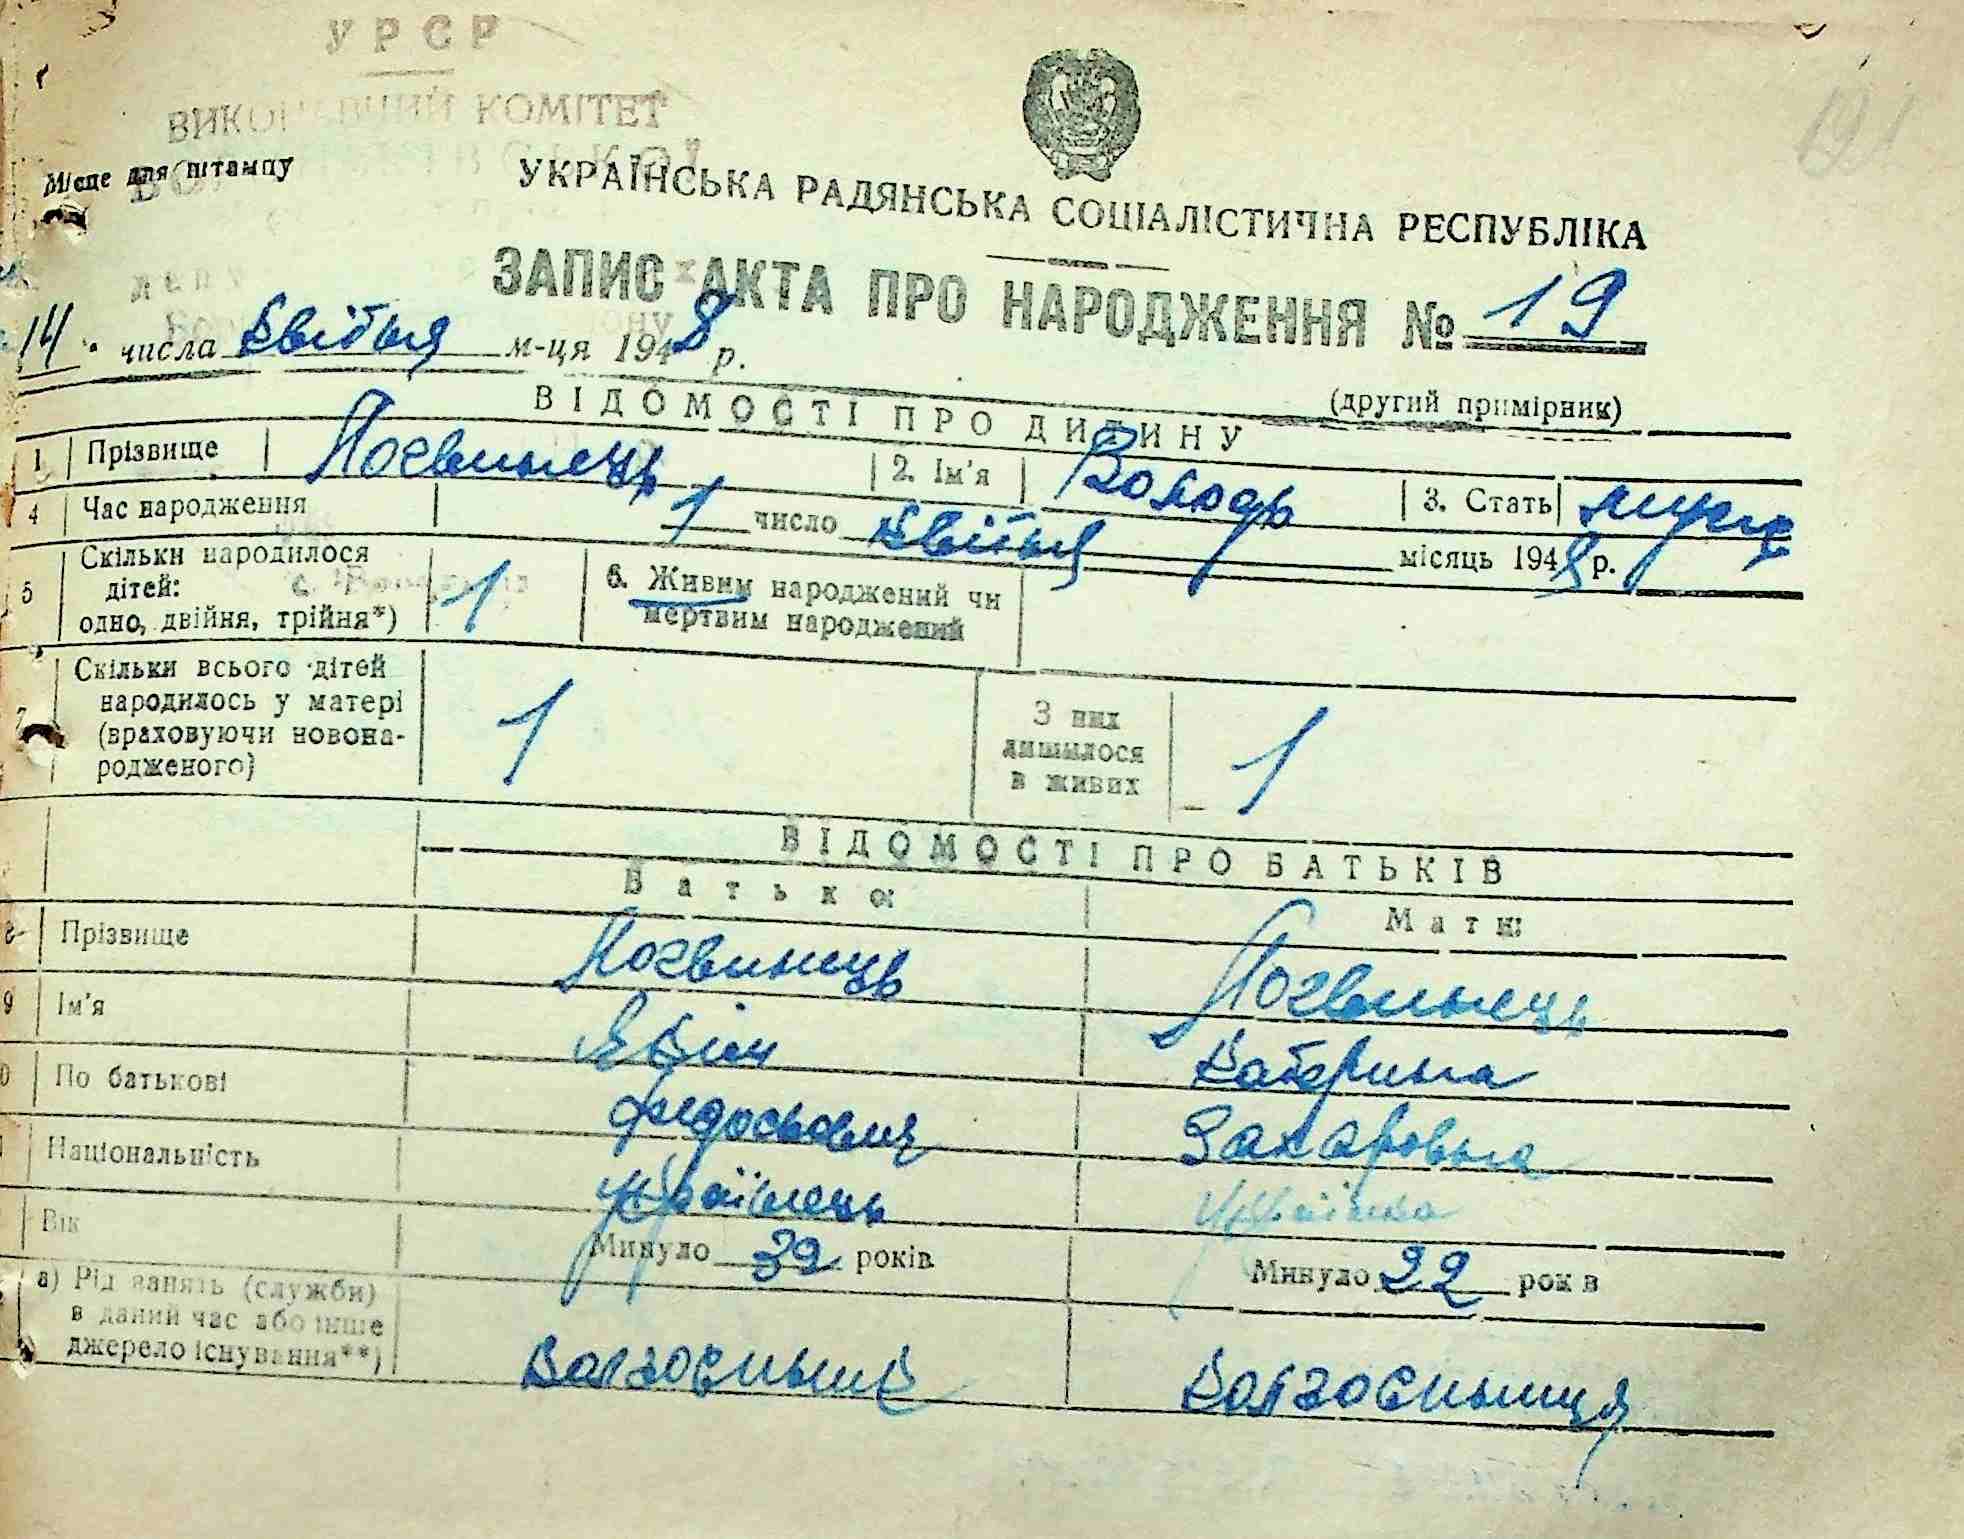 УРСР
ВИКОНАВЧИЙ КОМІТЕТ
Місце для штампу
191
УКРАЇНСЬКА РАДЯНСЬКА СОЦІАЛІСТИЧНА РЕСПУБЛІКА
ЗАПИС АКТА ПРО НАРОДЖЕННЯ № 19
14 числа квітня м-ця 1948 р.
(другий примірник)
ВІДОМОСТІ ПРО ДИТИНУ
1 Прізвище Логвинець 2. Ім'я Володь 3. Стать муж
4 Час народження 1 число квітня місяць 1948 р.
5 Скільки народилося дітей: одно, двійня, трійня*) 1 6. Живим народжений чи мертвим народжений
7 Скільки всього дітей народилось у матері (враховуючи новонародженого) 1 З них лишилося в живих 1
ВІДОМОСТІ ПРО БАТЬКІВ
Батько: Мати:
8 Прізвище Логвинець Логвинець
9 Ім'я Якім Катерина
0 По батькові Федосьович Захаровна
Національність Українець Українка
Вік Минуло 32 років Минуло 22 років
а) Рід занять (служби) в даний час або інше джерело існування**) Колгоспник Колгоспниця